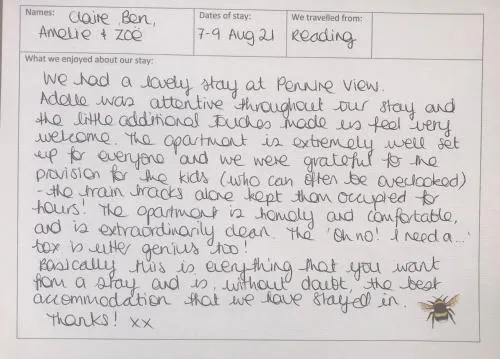 Names: Claire, Ben, Amelie & Zoë
Dates of stay: 7-9 Aug 21
We travelled from: Reading
What we enjoyed about our stay:
We had a lovely stay at Pennine View.
Adele was attentive throughout our stay and
the little additional touches made us feel very
welcome. The apartment is extremely well set
up for everyone and we were grateful for the
provision for the kids (who can often be overlooked)
- the train tracks alone kept them occupied for
hours! The apartment is homely and comfortable,
and is extraordinarily clean. The 'Oh no! I need a...'
box is utter genius too!
Basically this is everything that you want
from a stay and is, without doubt, the best
accommodation that we have stayed in.
Thanks! xx